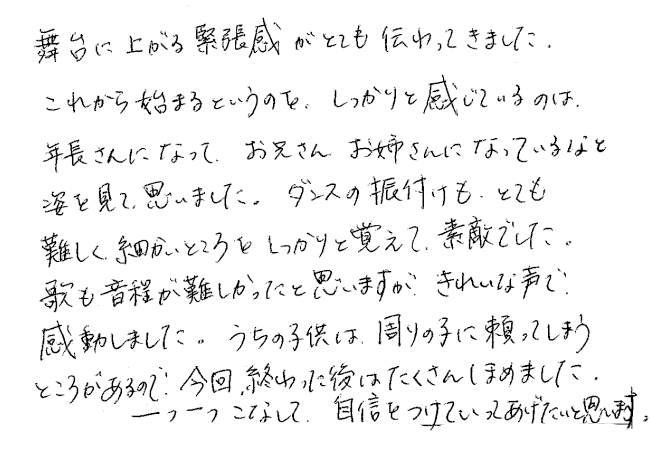 舞台に上がる緊張感がとても伝わってきました.
これから始まるというのを、しっかりと感じているのは、
年長さんになって、お兄さん お姉さんになっているなと
姿を見て、思いました。ダンスの振付けも、とても
難しく、細かいところをしっかりと覚えて、素敵でした。
歌も音程が難しかったと思いますが、きれいな声で、
感動しました。うちの子供は、周りの子に頼ってしまう
ところがあるので、今回、終わった後はたくさんほめました.
一つ一つこなして、自信をつけていってあげたいと思います。